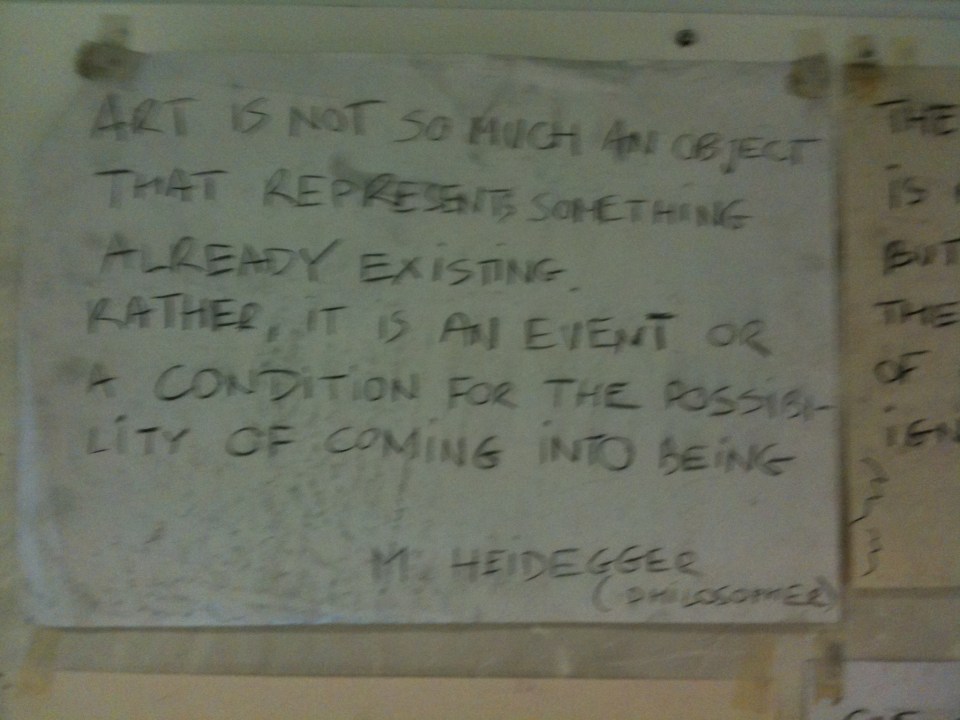 ART iS NOT SO MUCH AN OBJECT
THAT REPRESENTS SOMETHING
ALREADY EXiSTiNG.
RATHER, iT iS AN EVENT OR
A CONDiTiON FOR THE POSSiBi-
LiTY OF COMiNG iNTO BEiNG
M. HEiDEGGER
(PHiLOSOPHER)
THE
iS
BUT
THE
OF
iGN